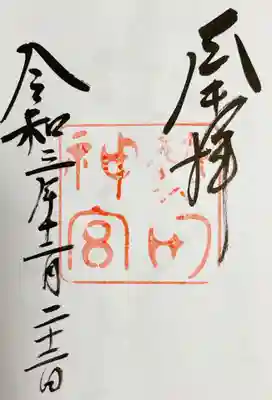 奉拝
神宮
令和三年十二月二十二日